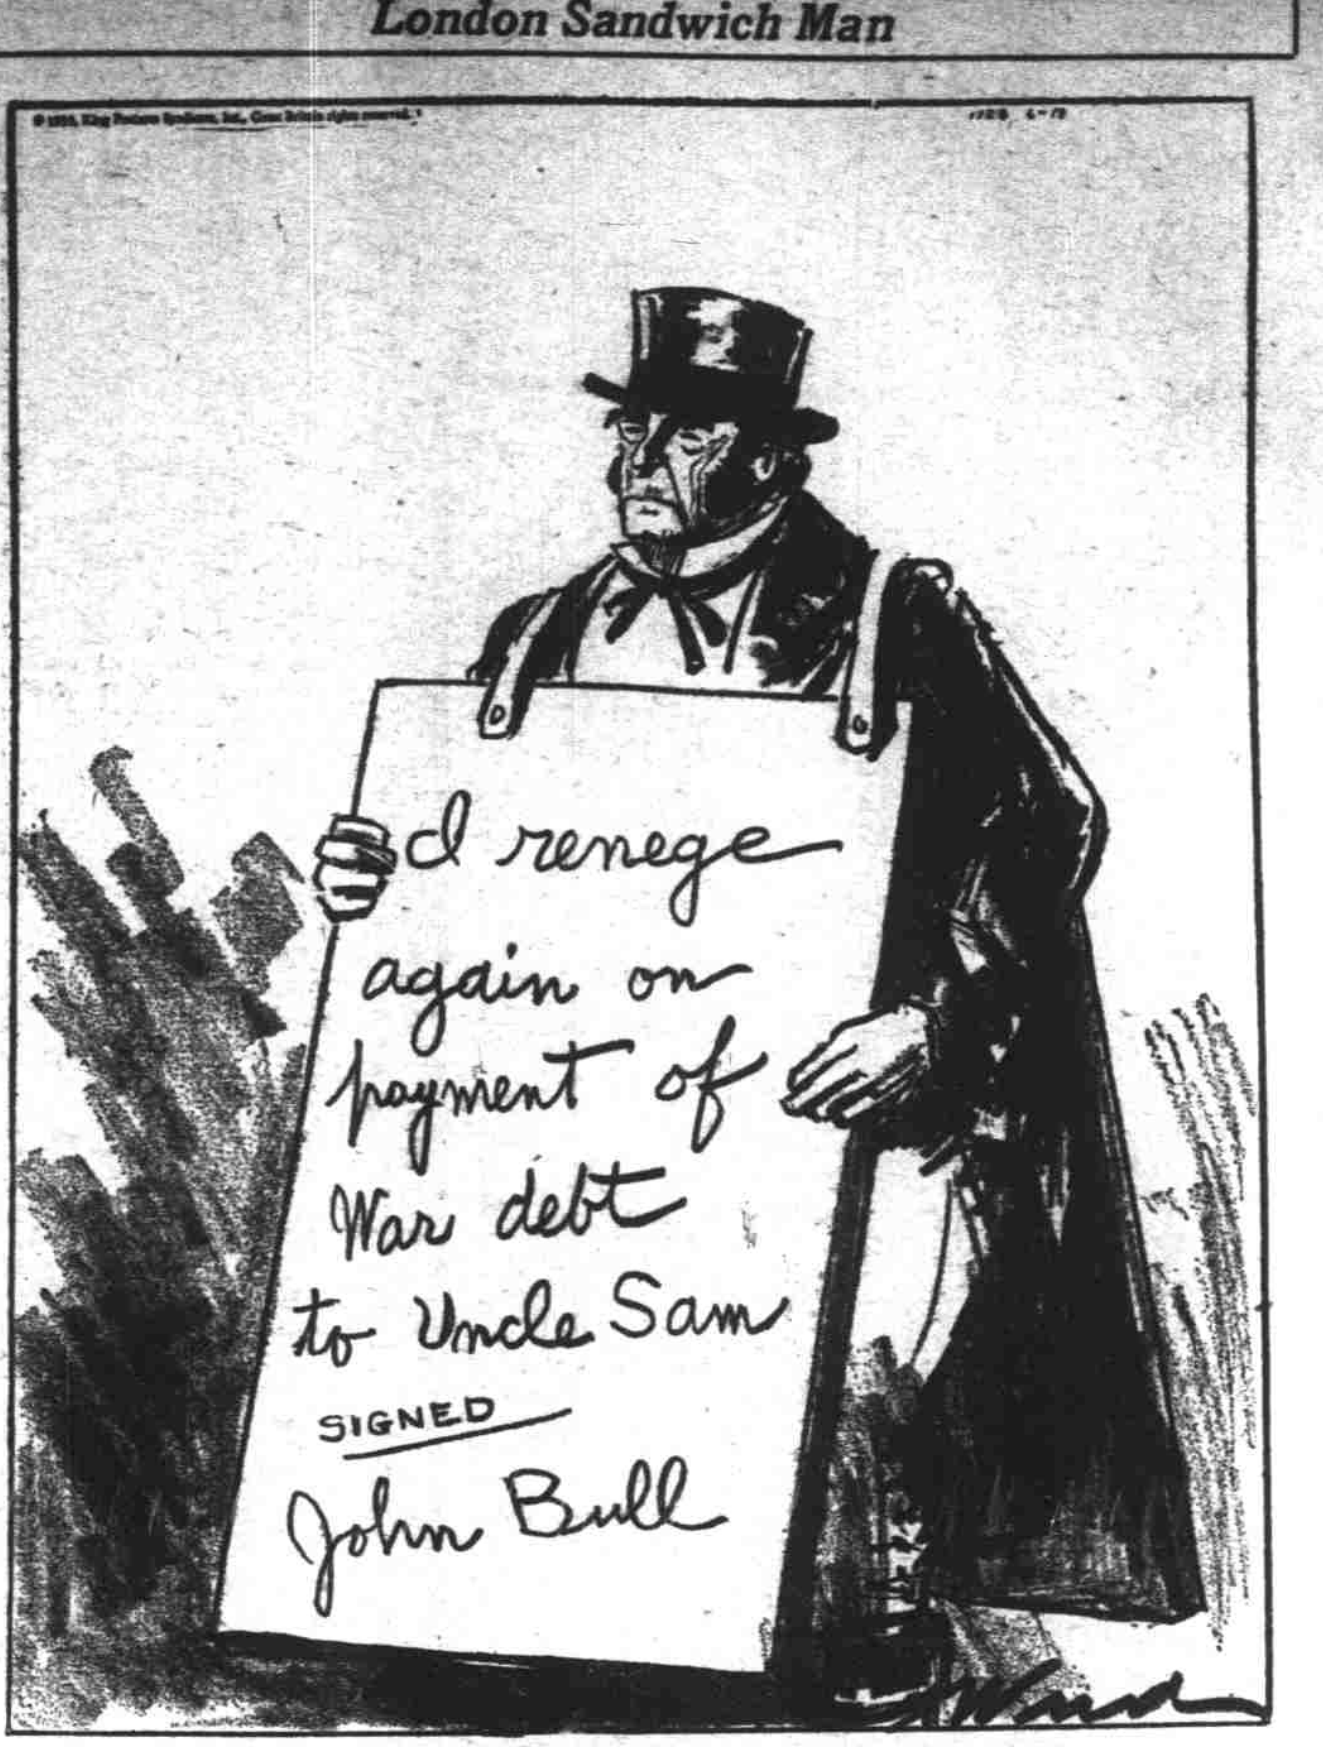 London Sandwich Man
King Features Syndicate, Inc., Great Britain rights reserved.
I renege
again on
payment of
War debt
to Uncle Sam
SIGNED
John Bull
Ward